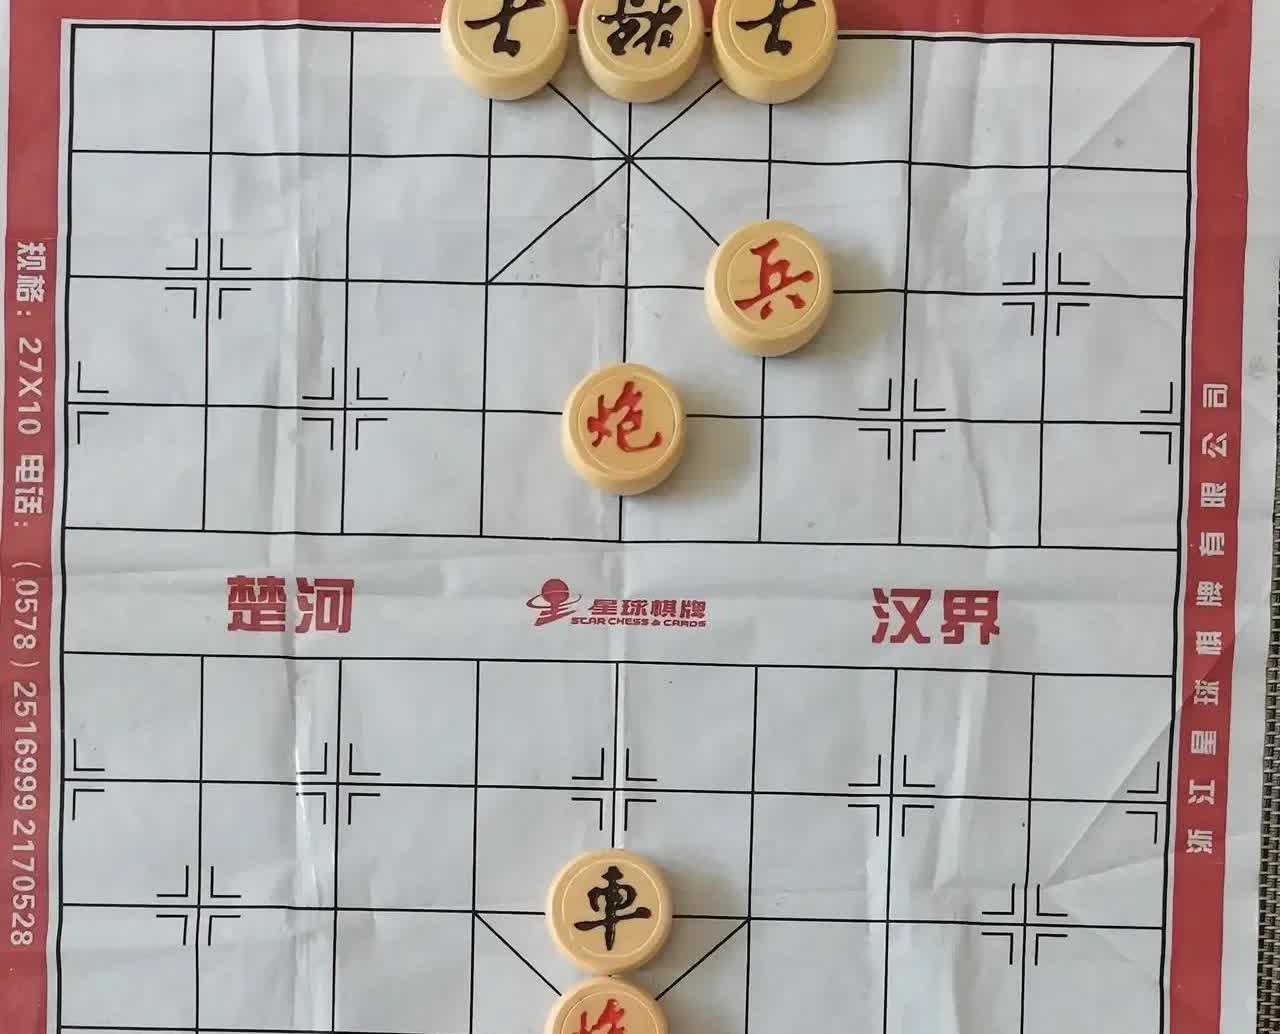 士 将 士
兵
炮
楚河 星球棋牌 汉界
STAR CHESS & CARDS
車
炮
规格：27X10 电话：（0578）2516999 2170528
浙江星球棋牌有限公司